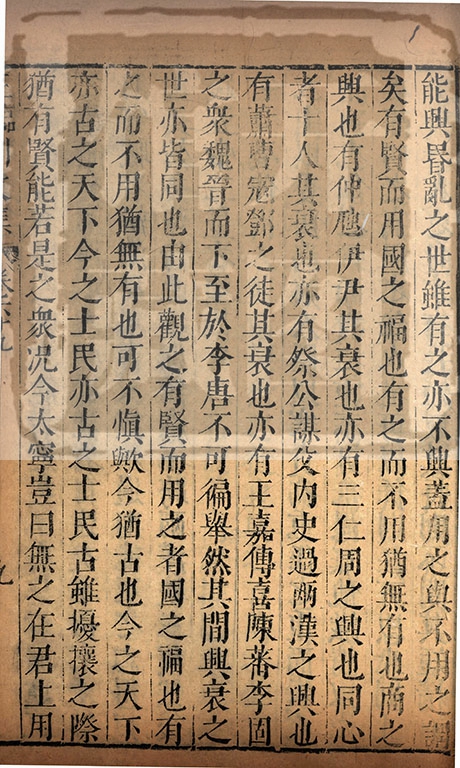 能興昬亂之世雖有之亦不興蓋用之與不用之謂
矣有賢而用國之福也有之而不用猶無有也商之
興也有仲虺伊尹其衰也亦有三仁周之興也同心
者十人其衰也亦有祭公謀父内史過兩漢之興也
有蕭曹寇鄧之徒其衰也亦有王嘉傅喜陳蕃李固
之衆魏晉而下至於李唐不可徧舉然其間興衰之
世亦皆同也由此觀之有賢而用之者國之福也有
之而不用猶無有也可不愼歟今猶古也今之天下
亦古之天下今之士民亦古之士民古雖擾攘之際
猶有賢能若是之衆况今太寧豈曰無之在君上用